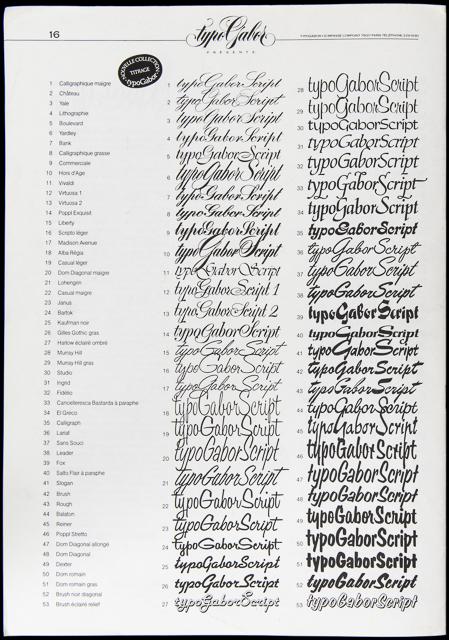 16
typoGabor
PRESENTE
NOUVELLE COLLECTION
TITRAGE
typoGabor
1 Calligraphique maigre
2 Château
3 Yale
4 Lithographie
5 Boulevard
6 Yardley
7 Bank
8 Calligraphique grasse
9 Commerciale
10 Hors d'Age
11 Vivaldi
12 Virtuosa 1
13 Virtuosa 2
14 Poppl Exquisit
15 Liberty
16 Scripto léger
17 Madison Avenue
18 Alba Régia
19 Casual léger
20 Dom Diagonal maigre
21 Lohengrin
22 Casual maigre
23 Janus
24 Bartok
25 Kaufman noir
26 Gillies Gothic gras
27 Harlow éclairé ombré
28 Murray Hill
29 Murray Hill gras
30 Studio
31 Ingrid
32 Fidelio
33 Cancelleresca Bastarda à paraphe
34 El Greco
35 Calligraph
36 Larial
37 Sans Souci
38 Leader
39 Fox
40 Salto Flair à paraphe
41 Slogan
42 Brush
43 Rough
44 Balaton
45 Reiner
46 Poppl Stretto
47 Dom Diagonal allongé
48 Dom Diagonal
49 Dexter
50 Dom romain
51 Dom romain gras
52 Brush noir diagonal
53 Brush éclairé relief
1 typoGabor Script
2 typoGabor Script
3 typoGabor Script
4 typoGabor Script
5 typoGabor Script
6 typoGabor Script
7 typoGabor Script
8 typoGabor Script
9 typoGabor Script
10 typoGabor Script
11 typoGabor Script
12 typoGabor Script 1
13 typoGabor Script 2
14 typoGabor Script
15 typoGabor Script
16 typoGabor Script
17 typoGabor Script
18 typoGabor Script
19 typoGabor Script
20 typoGabor Script
21 typoGabor Script
22 typoGabor Script
23 typoGabor Script
24 typoGabor Script
25 typoGabor Script
26 typoGabor Script
27 typoGabor Script
28 typoGabor Script
29 typoGabor Script
30 typoGabor Script
31 typoGabor Script
32 typoGabor Script
33 typoGabor Script
34 typoGabor Script
35 typoGabor Script
36 typoGabor Script
37 typoGabor Script
38 typoGabor Script
39 typoGabor Script
40 typoGabor Script
41 typoGabor Script
42 typoGabor Script
43 typoGabor Script
44 typoGabor Script
45 typoGabor Script
46 typoGabor Script
47 typoGabor Script
48 typoGabor Script
49 typoGabor Script
50 typoGabor Script
51 typoGabor Script
52 typoGabor Script
53 typoGabor Script